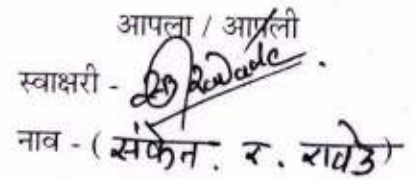 आपला / आपली
स्वाक्षरी -
नाव - ( संकेत . र . रावडे )